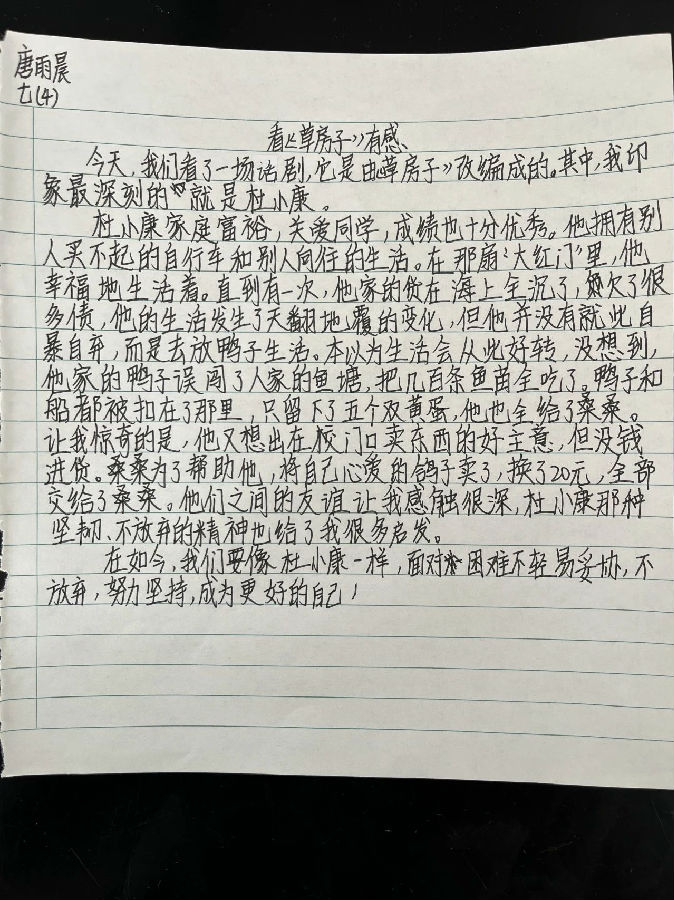 唐雨晨
七(4)
看《草房子》有感
今天,我们看了一场话剧,它是由《草房子》改编成的。其中,我印
象最深刻的就是杜小康。
杜小康家庭富裕,关爱同学,成绩也十分优秀。他拥有别
人买不起的自行车和别人向往的生活。在那扇“大红门”里,他
幸福地生活着。直到有一次,他家的货在海上全沉了,欠了很
多债,他的生活发生了天翻地覆的变化,但他并没有就此自
暴自弃,而是去放鸭子生活。本以为生活会从此好转,没想到,
他家的鸭子误闯了人家的鱼塘,把几百条鱼苗全吃了。鸭子和
船都被扣在了那里,只留下了五个双黄蛋,他也全给了桑桑。
让我惊奇的是,他又想出在校门口卖东西的好主意,但没钱
进货。桑桑为了帮助他,将自己心爱的鸽子卖了,换了20元,全部
交给了桑桑。他们之间的友谊让我感触很深,杜小康那种
坚韧、不放弃的精神也给了我很多启发。
在如今,我们要像杜小康一样,面对困难不轻易妥协,不
放弃,努力坚持,成为更好的自己!